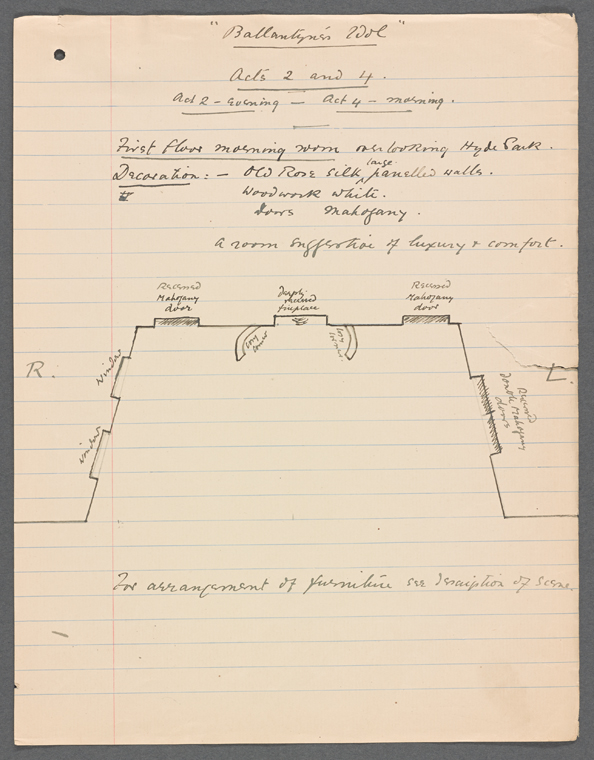 "Ballantyne's Idol"
Acts 2 and 4.
Act 2 - evening - Act 4 - morning.
First floor morning room overlooking Hyde Park.
large
Decoration: - Old Rose silk panelled walls.
Woodwork white.
Doors Mahogany.
A room suggestive of luxury & comfort.
Recessed
Mahogany
door
Deeply
recessed
fireplace
Recessed
Mahogany
door
Cosy
Corner
Cosy
Corner.
R.
Window
Window
L.
Recessed
double Mahogany
doors
For arrangement of furniture see description of scene.